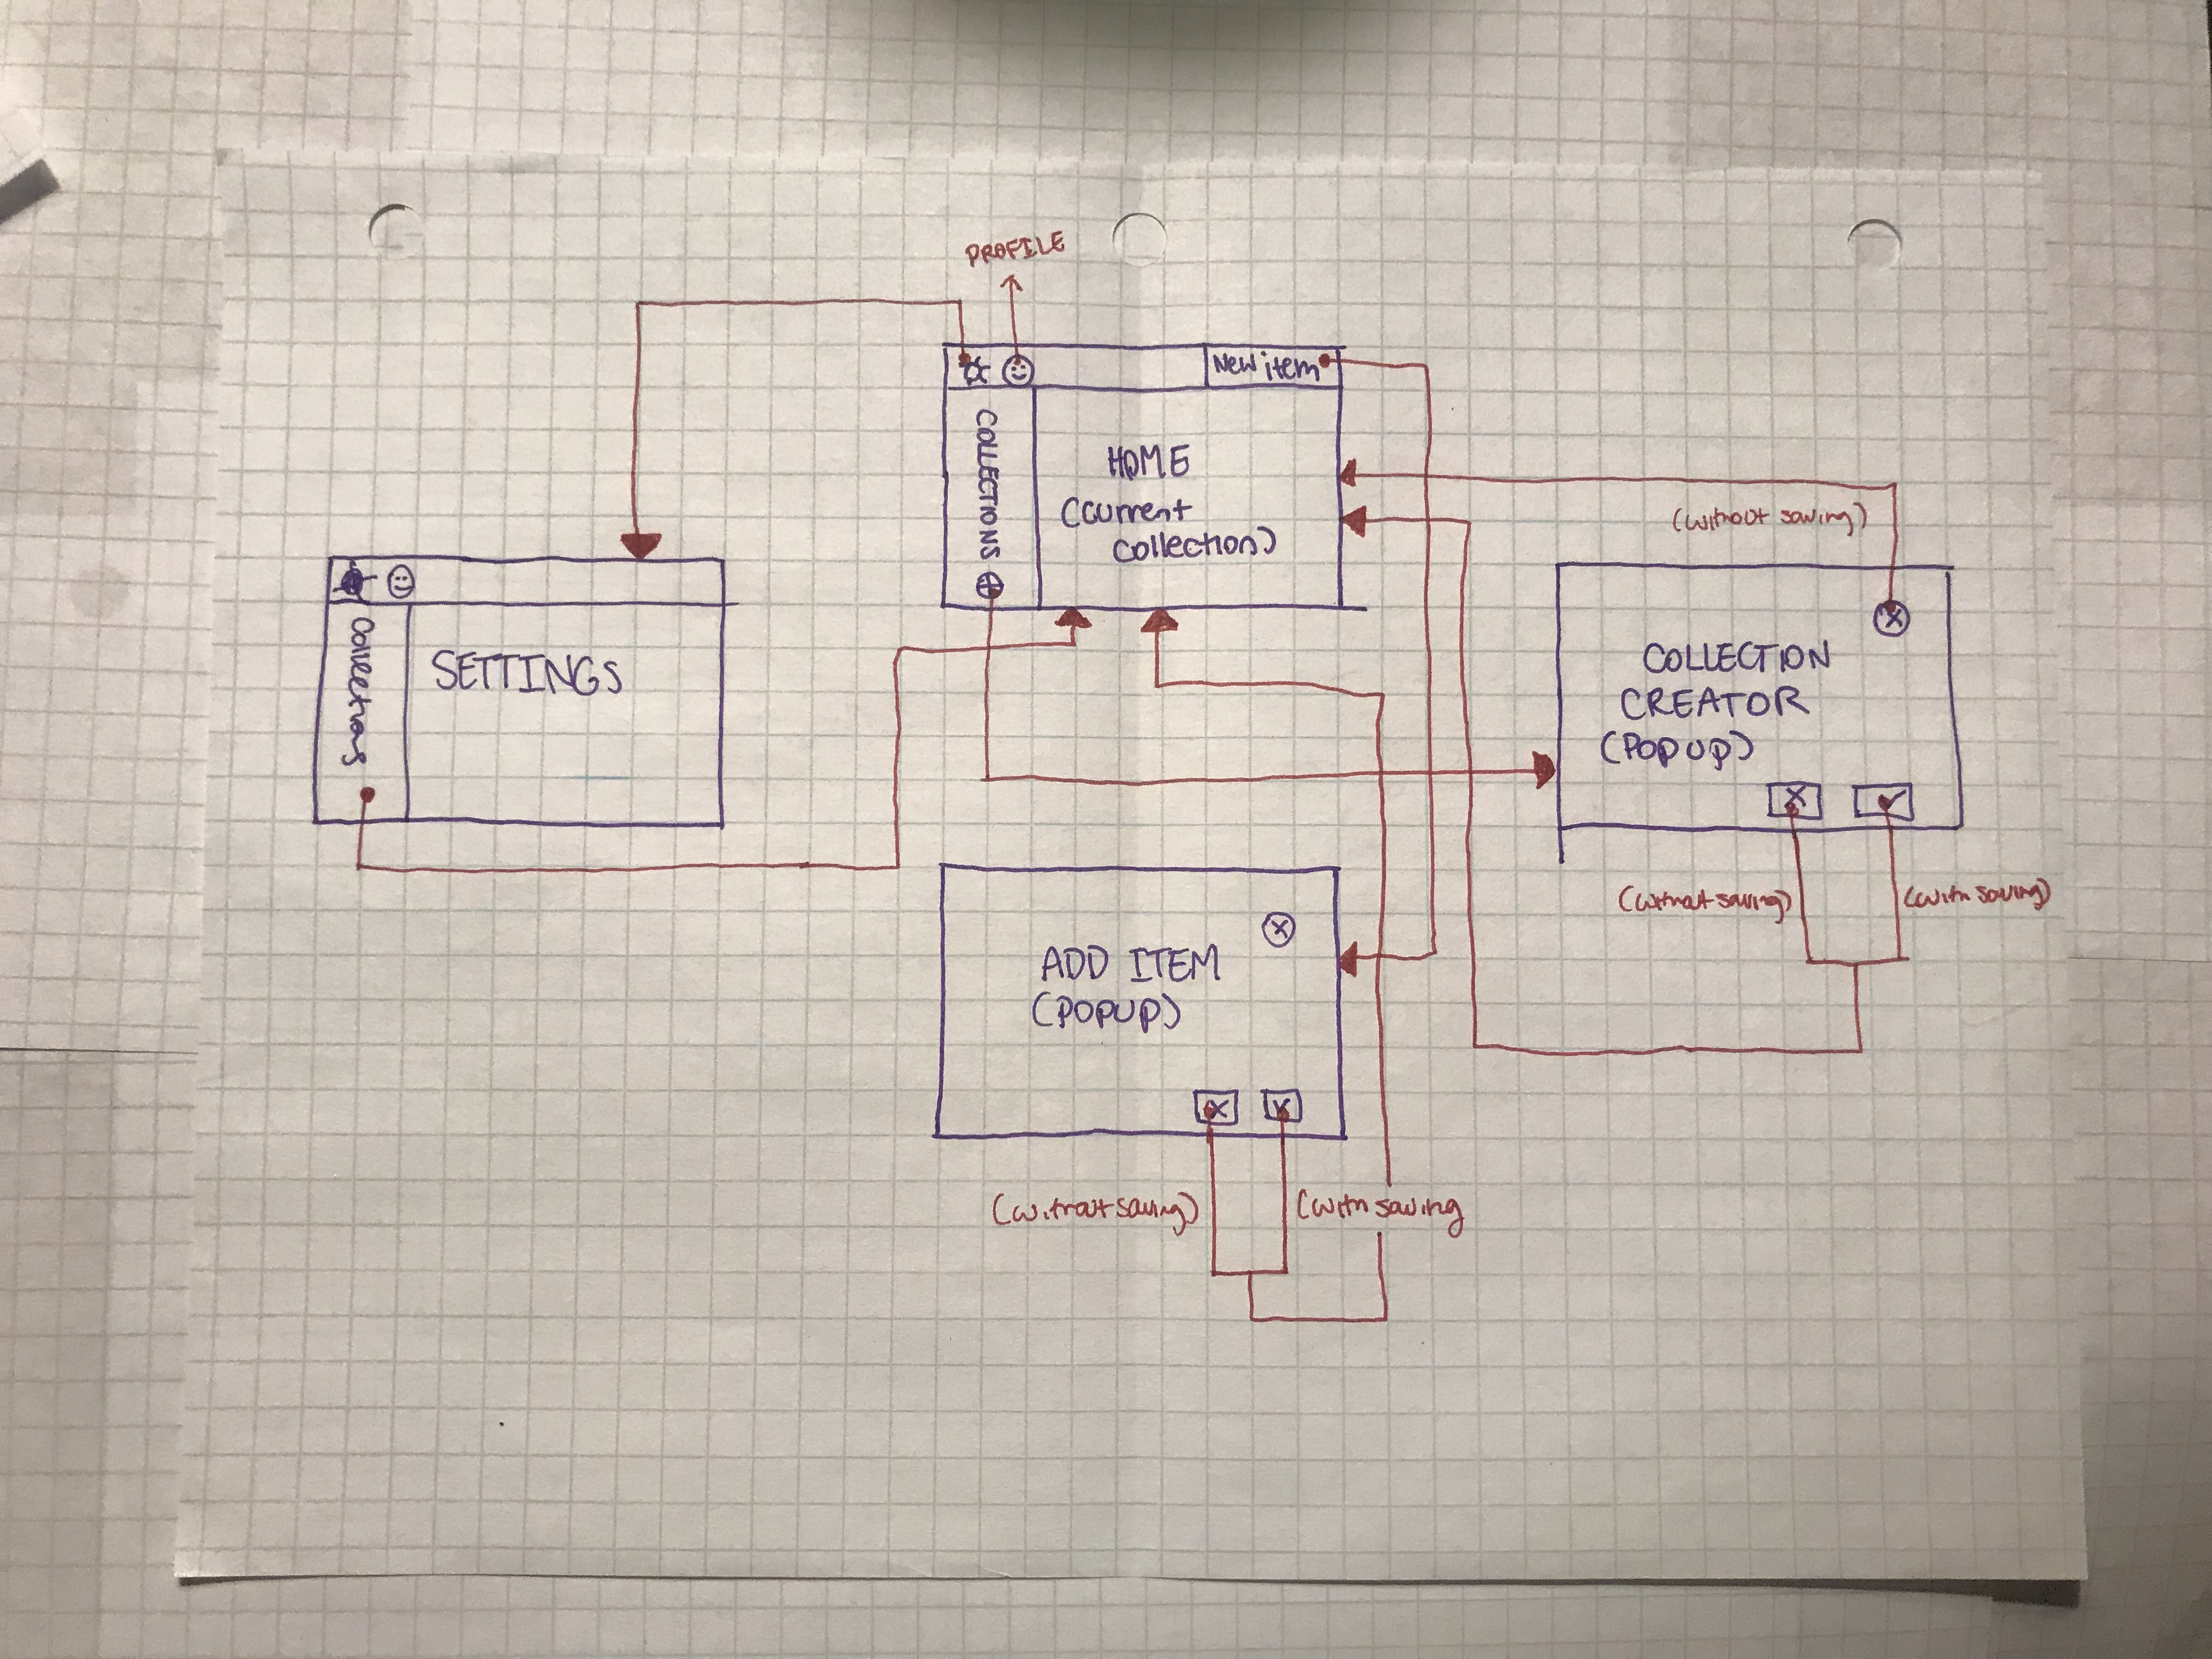 PROFILE
New item
COLLECTIONS
HOME
(current
collection)
(without saving)
Collections
SETTINGS
COLLECTION
CREATOR
(POPUP)
(without saving)
(with saving)
ADD ITEM
(POPUP)
(without saving)
(with saving